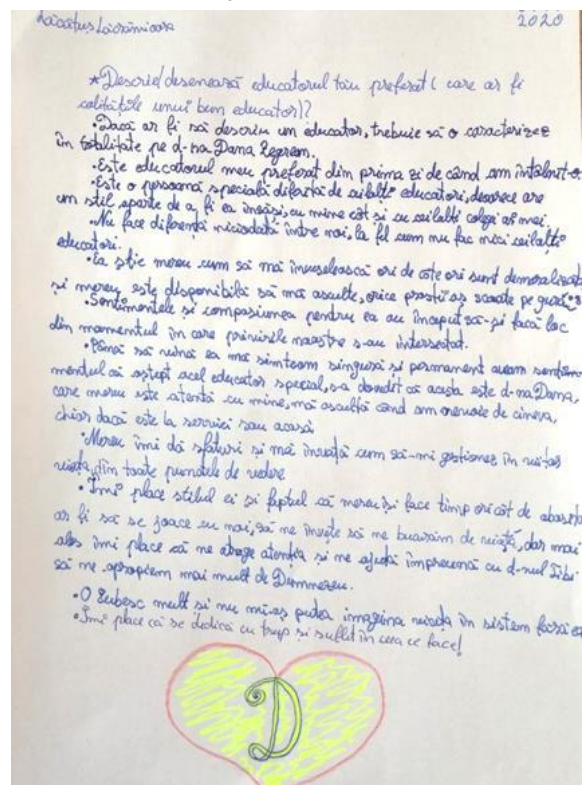 Lăcătuș Lăcrămioara 2020
*Descrie/desenează educatorul tău preferat (care ar fi
calitățile unui bun educator)?
•Dacă ar fi să descriu un educator, trebuie să o caracterizez
în totalitate pe d-na Dana
•Este educatorul meu preferat din prima zi de când am întâlnit-o
•Este o persoană specială diferită de ceilalți educatori, deoarece are
un stil aparte de a fi ea însăși, cu mine cât și cu ceilalți colegi ai mei
•Nu face diferență niciodată între noi, la fel cum nu fac nici ceilalți
educatori.
•Ea știe mereu cum să mă înveselească ori de câte ori sunt demoralizată
și mereu este disponibilă să mă asculte, orice prostii aș scoate pe gură
•Sentimentele și compasiunea pentru ea au început să-și facă loc
din momentul în care privirile noastre s-au intersectat.
•Până să vină ea mă simțeam singură și permanent aveam sentim-
mentul că aștept acel educator special, s-a dovedit că acesta este d-na Dana,
care mereu este atentă cu mine, mă ascultă când am nevoie de cineva,
chiar dacă este la servici sau acasă
•Mereu îmi dă sfaturi și mă învață cum să-mi gestionez în
viața, din toate punctele de vedere
•Îmi place stilul ei și faptul că mereu își face timp oricât de obosită
ar fi să se joace cu noi, să ne învețe să ne bucurăm de viață, dar mai
ales îmi place că ne atrage atenția și ne ajută împreună cu d-nul Tibi
să ne apropiem mai mult de Dumnezeu.
•O Iubesc mult și nu mi-aș putea imagina viața în sistem fără ea
•Îmi place că se dedică cu trup și suflet în ceea ce face!
D